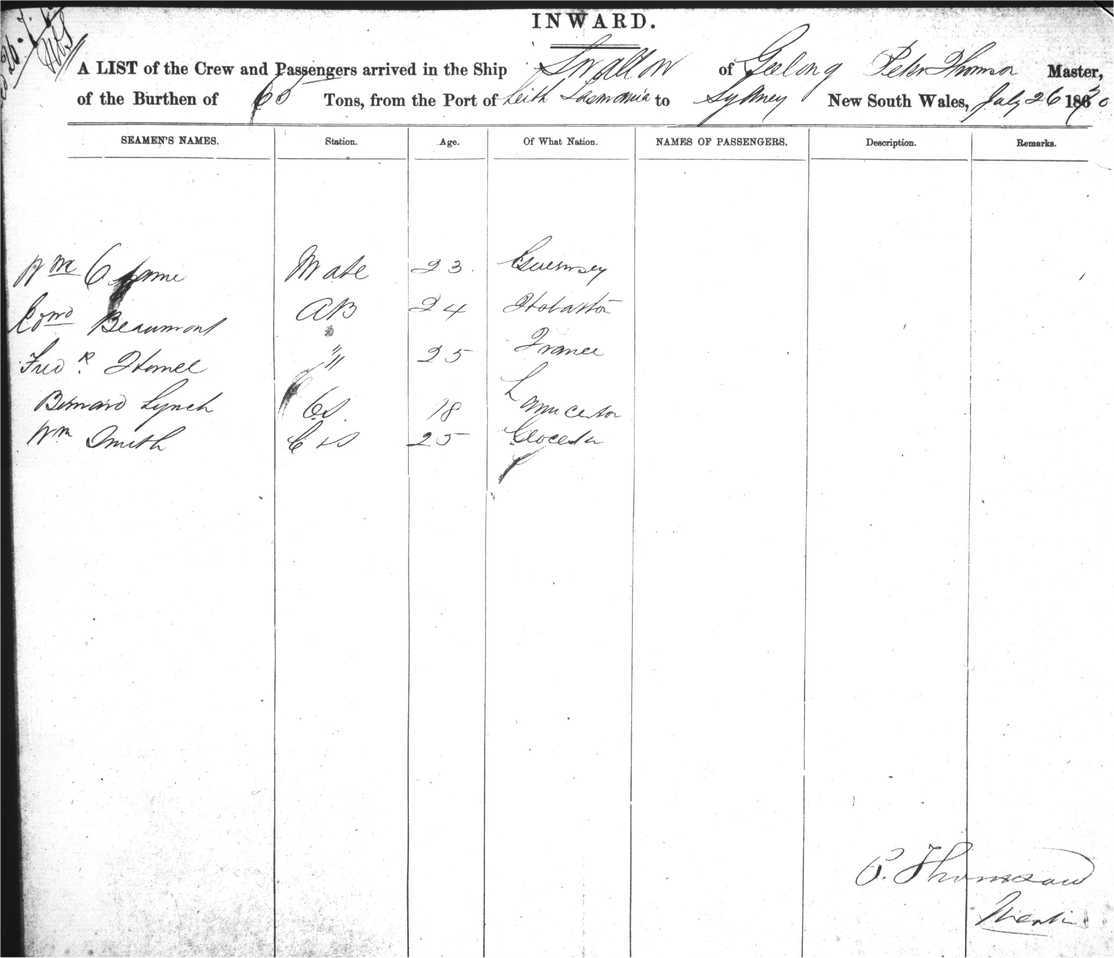 INWARD.
A LIST of the Crew and Passengers arrived in the Ship Swallow of Geelong Peter Thomson Master,
of the Burthen of 65 Tons, from the Port of Leith Tasmania to Sydney New South Wales, July 26 18
SEAMEN'S NAMES. Station. Age. Of What Nation. NAMES OF PASSENGERS. Description. Remarks.
Wm Mate 23 Guernsey
Edmd Beaumont AB 24 Hobarton
Fredk " 25 France
Bernard Lynch OS 18 Launceston
Wm Smith C & S 25 Glocester
P. Thomson
Master